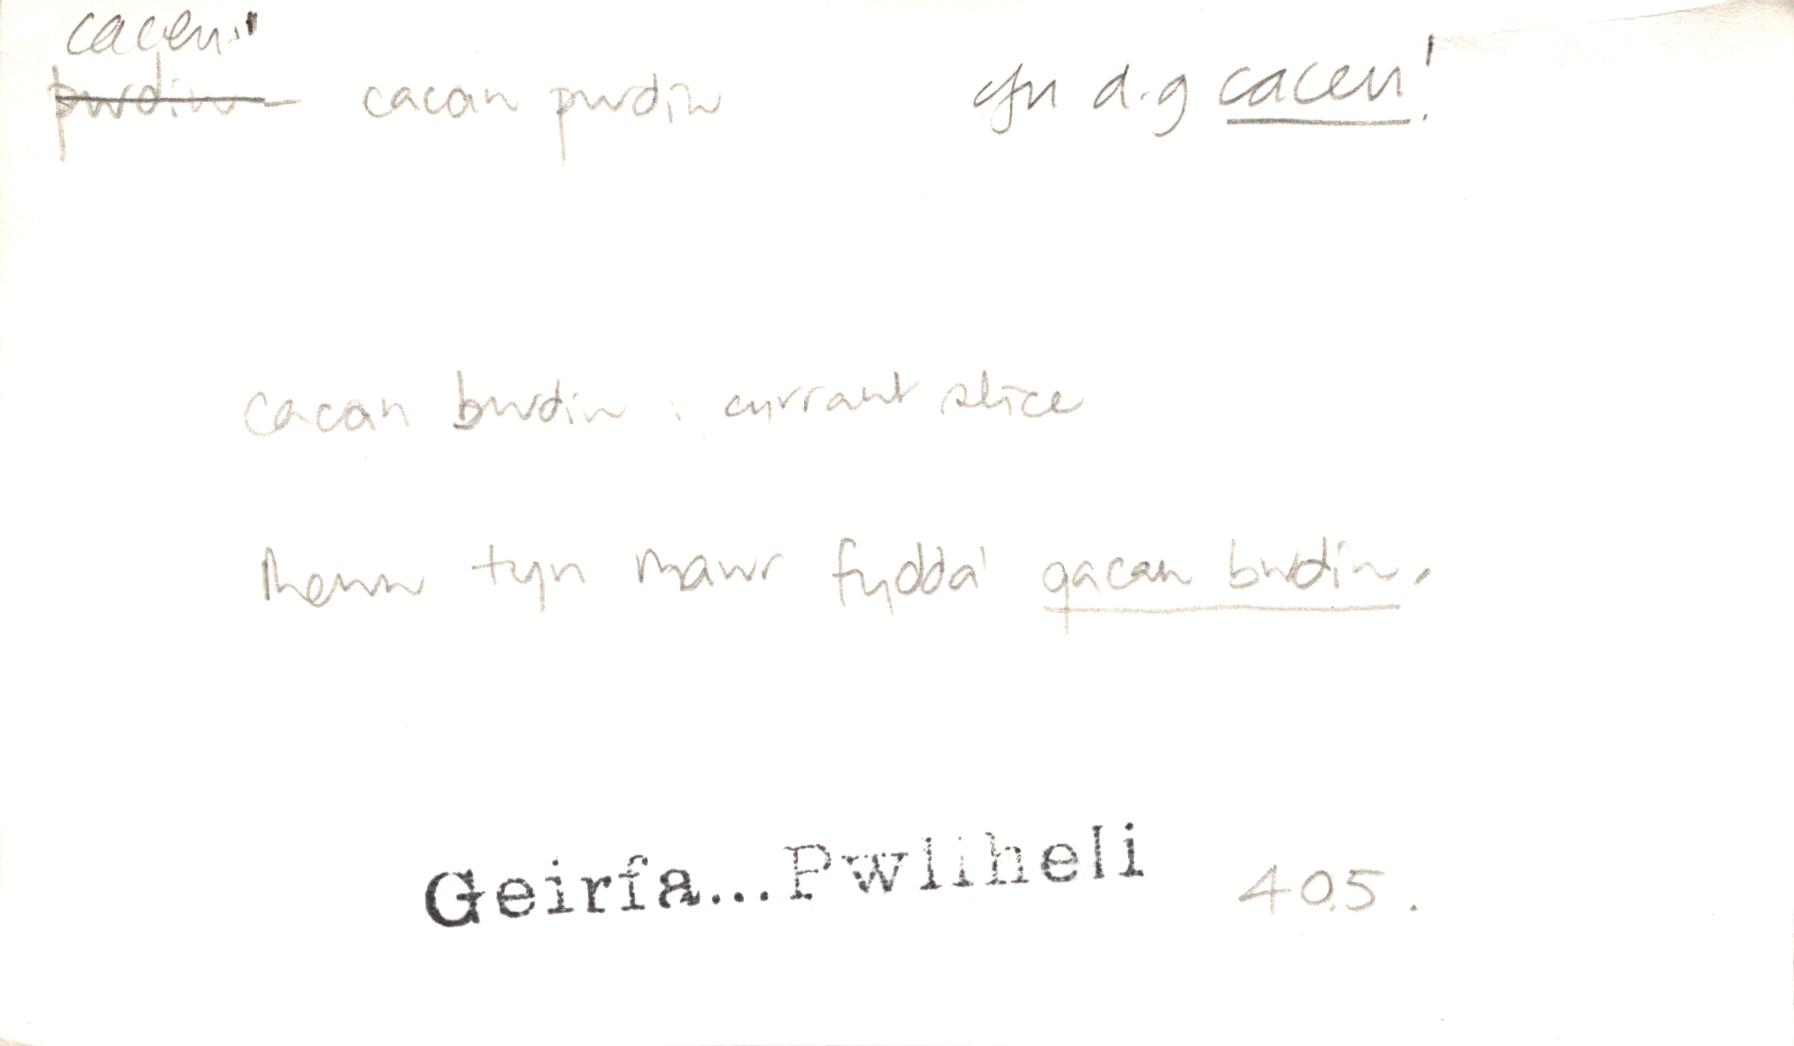 cacen¹
pwdin cacan pwdin cfn d.g cacen¹.
cacan bwdin : currant slice
Mewn tyn mawr fydda' gacan bwdin.
Geirfa...Pwllheli 405.